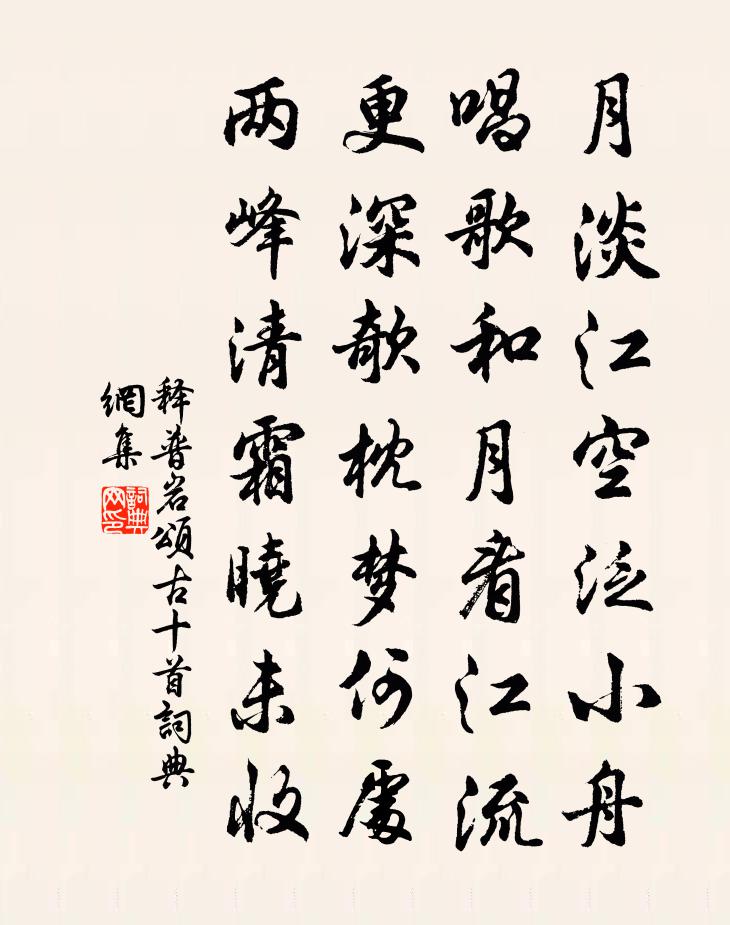 月淡江空泛小舟
唱歌和月看江流
更深欹枕梦何處
两峰清霜曉未收
释普岩頌古十首詞典
網集
詞典
网印